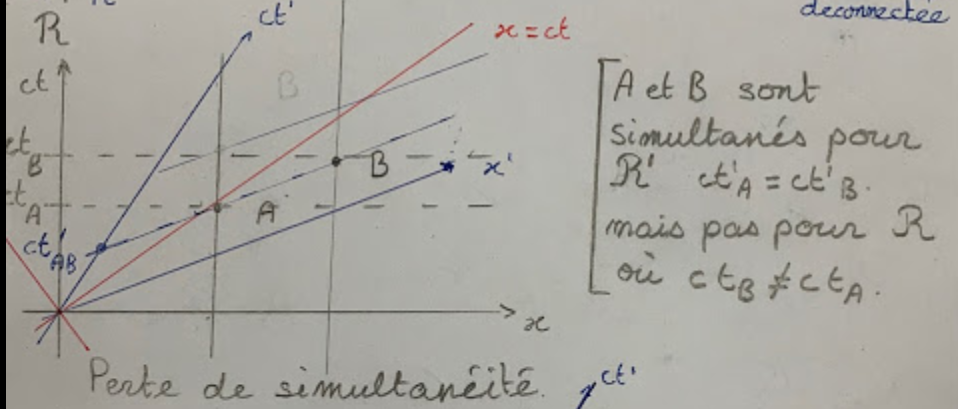 déconnectée
R
ct
ct'
x = ct
B
ct_B
B
x'
ct_A
A
ct'_AB
x
A et B sont
simultanés pour
R' ct'_A = ct'_B.
mais pas pour R
où ct_B ≠ ct_A.
Perte de simultanéité.
ct'